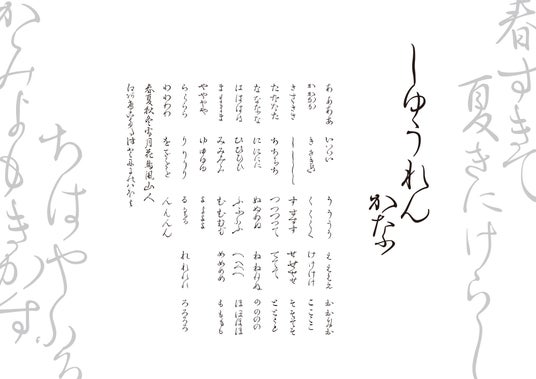 春すきて
夏きにけらし
しゅうれん
かな
ああああ いいいい うううう ええええ おおおお
かかかか きききき くくくく けけけけ ここここ
ささささ しししし すすすす せせせせ そそそそ
たたたた ちちちち つつつつ てててて とととと
なななな にににに ぬぬぬぬ ねねねね のののの
はははは ひひひひ ふふふふ へへへへ ほほほほ
まままま みみみみ むむむむ めめめめ もももも
やややや ゆゆゆゆ よよよよ
らららら りりりり るるるる れれれれ ろろろろ
わわわわ をををを んんんん
春夏秋冬雪月花鳥風山人
ちはやふる
かみよもきかす